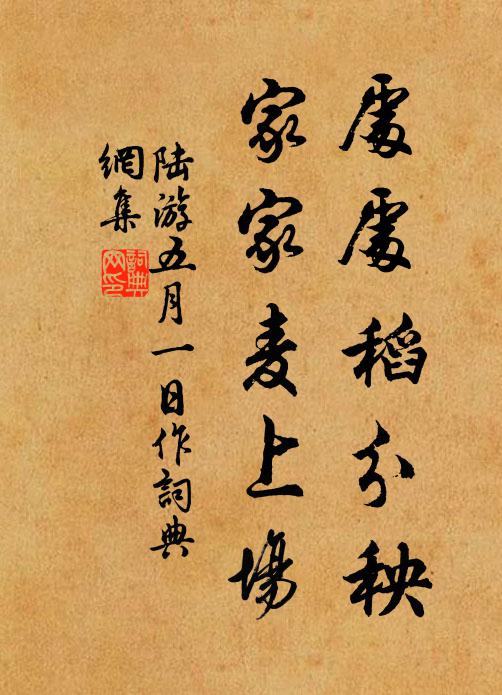 處處稻分秧
家家麦上場
陆游五月一日作詞典
網集
詞典
网印